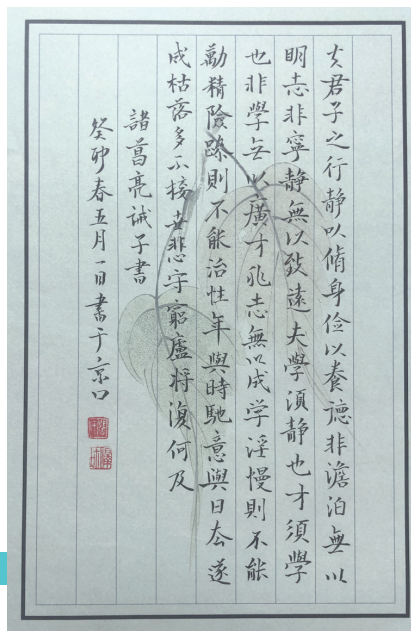 夫君子之行静以脩身儉以養德非澹泊無以
明志非寧静無以致遠夫學須静也才須學
也非學无以廣才非志無以成学淫慢則不能
勵精險躁則不能治性年與時馳意與日去遂
成枯落多不接世悲守窮廬將復何及
諸葛亮誡子書
癸卯春五月一日書于京口